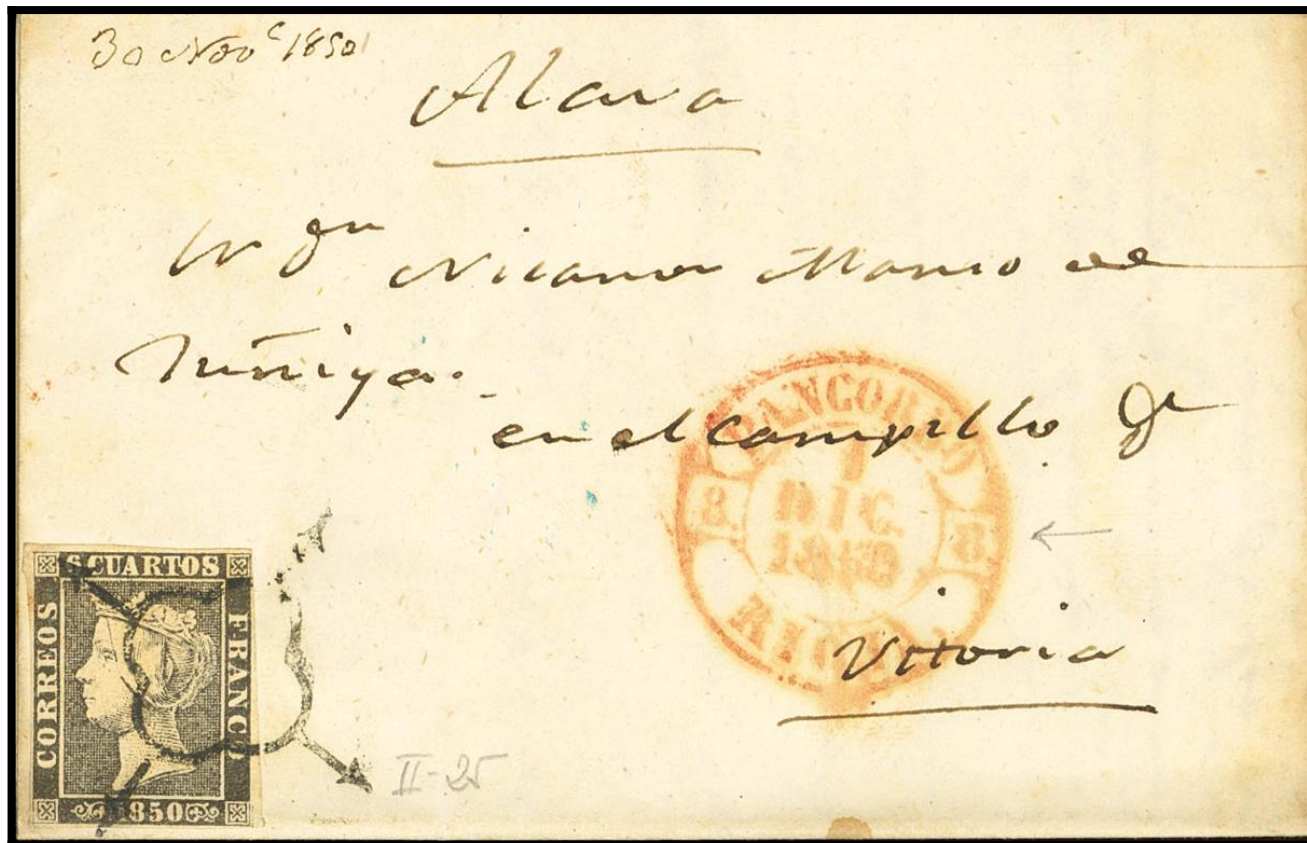 30 Nov^e 1850
Alava
Dⁿ Nicanor Manso de
Zuñiga.
en el campillo de
PANCORBO
1
DIC.
1850
8. 8.
RIOJA
Vitoria
6 CUARTOS
CORREOS
FRANCO
1850
II-25